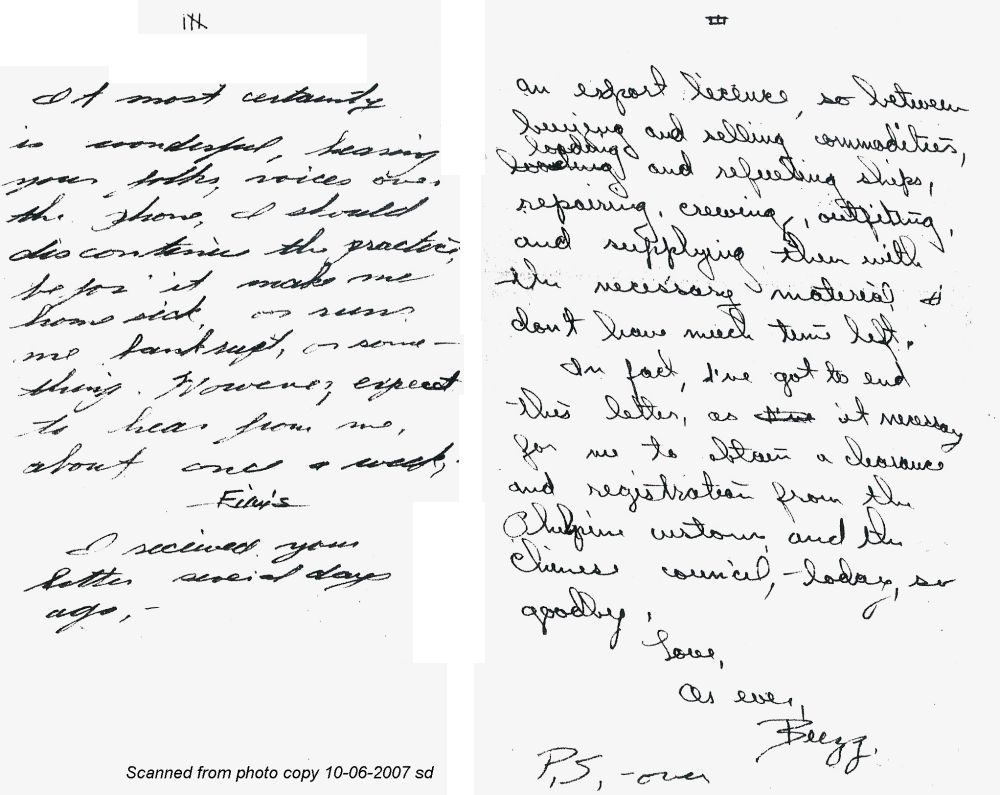 III
It most certainty
is wonderful, hearing
your folks, voices over
the phone, I should
discontinue the practice,
befor it make me
home sick, or runs
me bankrupt, or some-
thing. However, expect
to hear from me,
about once a week,
Finis
I recieved your
letter several days
ago,-
III
an export licence, so between
buying and selling commodities,
loading
loading and refueling ships,
repairing, crewing, outfiting,
and supplying them with
the necessary material, I
don't have much time left.
In fact, I've got to end
this letter, as it necessay
for me to obtain a clearance
and registration from the
customs, and the
Chinese council, - today, so
goodby,
Love,
As ever,
P,S, -over
Scanned from photo copy 10-06-2007 sd